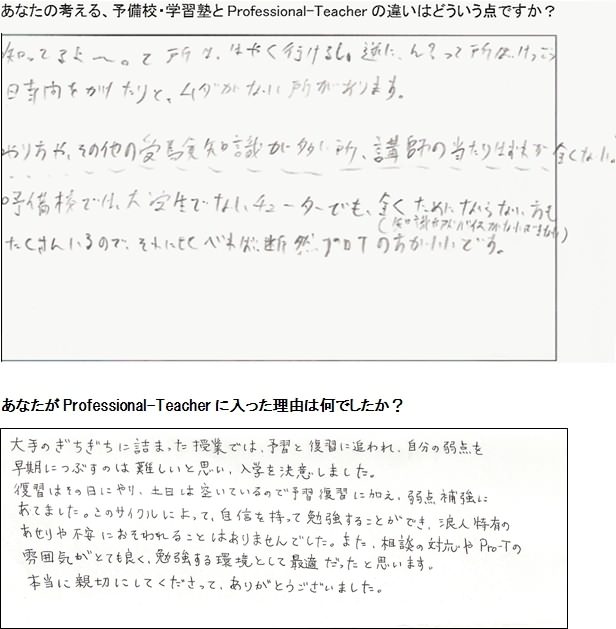 あなたの考える、予備校・学習塾とProfessional-Teacherの違いはどういう点ですか？
知ってるよ〜。て所は、はやく行けるし。逆に、ん？って所は、けっこう
日寺間をかけたりと、ムダがない所があります。
やり方や、その他の受験知識が多い所、講師の当たり外れが全くない。
予備校では、大学生でないチューターでも、全くためにならない方も
(知識
たくさんいるので、それに比べれば、断然プロTの方がいいです。
あなたがProfessional-Teacherに入った理由は何でしたか？
大手のぎちぎちに詰まった授業では、予習と復習に追われ、自分の弱点を
早期につぶすのは難しいと思い、入学を決意しました。
復習はその日にやり、土日は空いているので予習復習に加え、弱点補強に
あてました。このサイクルによって、自信を持って勉強することができ、浪人特有の
あせりや不安におそわれることはありませんでした。また、相談の対応やPro-Tの
雰囲気がとても良く、勉強する環境として最適だったと思います。
本当に親切にしてくださって、ありがとうございました。